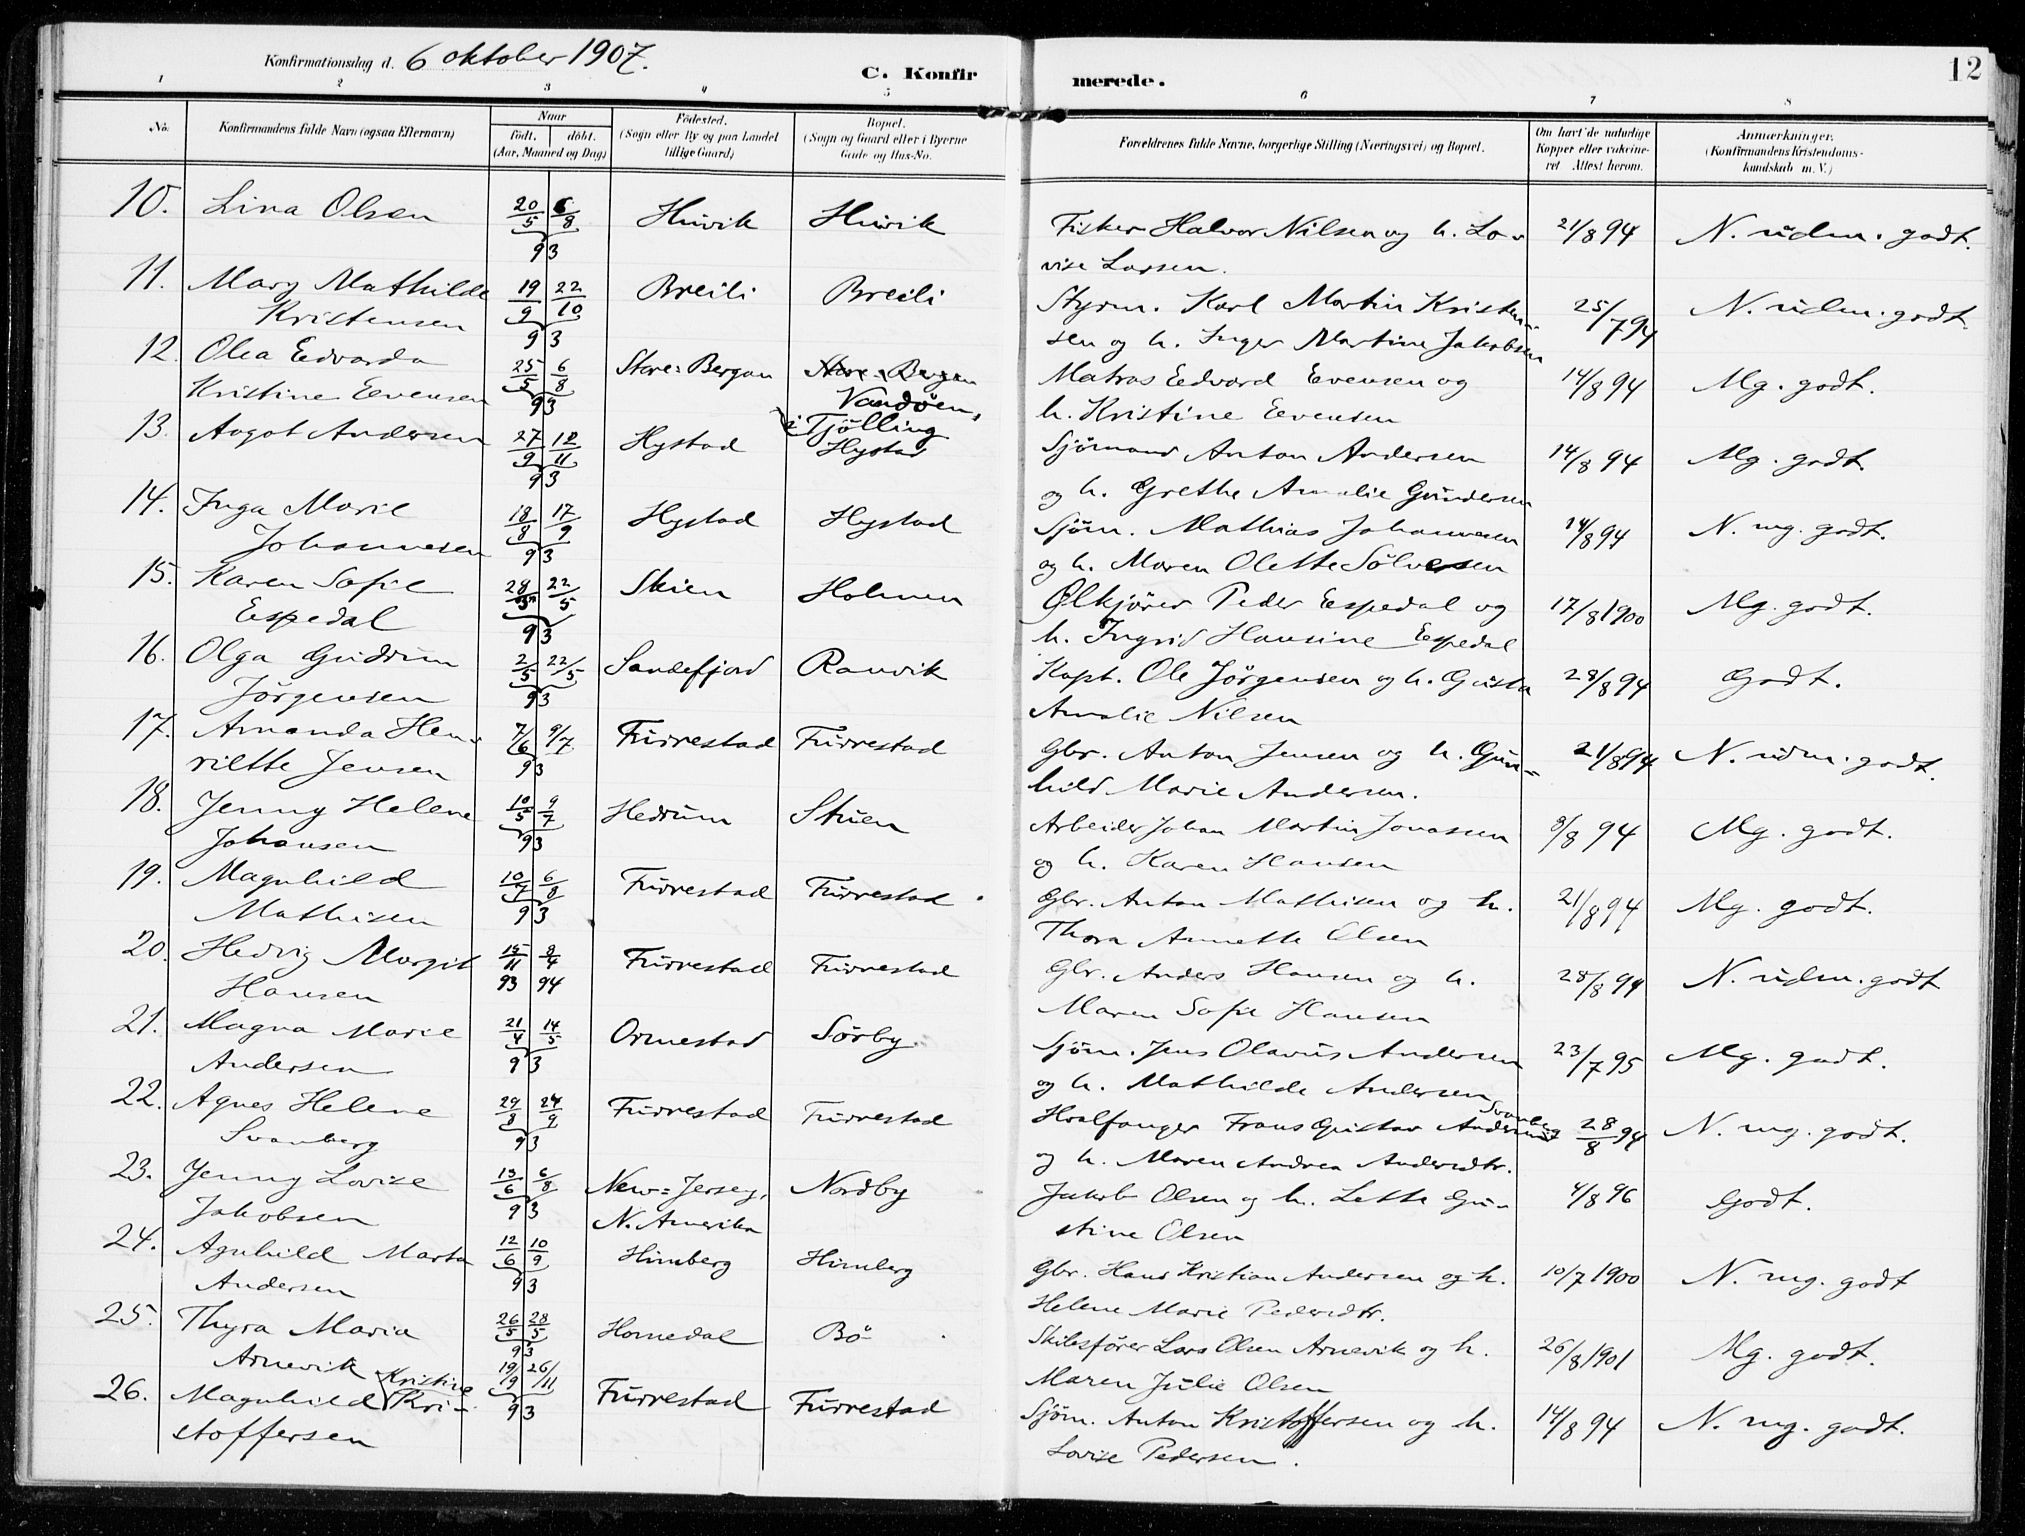 Konfirmationsdag d. 6 oktober 1907.
C. Konfirmerede.
12
1 2 3 4 5 6 7 8
No. Konfirmandens fulde Navn (ogsaa Efternavn) Naar født. døbt. (Aar, Maaned og Dag) Fødested. (Sogn eller By og paa Landet tillige Gaard) Bopæl. (Sogn og Gaard eller i Byerne Gade og Hus-No. Forældrenes fulde Navne, borgerlige Stilling (Næringsvei) og Bopæl. Om havt de naturlige Kopper eller vakcineret Attest herom. Anmærkninger. (Konfirmandens Kristendomskundskab m. V.)
10. Lina Olsen 20/5 6/8 93 Huvik Huvik Fisker Halvor Nilsen og h. Lo- 21/8 94 N. udm. godt.
vise Larsen.
11. Mary Mathilde 19/9 22/10 93 Breili Breili Styrm. Karl Martin Kristen- 25/7 94 N. udm. godt
Kristensen sen og h. Inger Martine Jakobsen
12. Olea Edvarda 25/5 6/8 93 Store=Bergan Store=Bergan Matros Edvard Evensen og 14/8 94 Mg. godt.
Kristine Evensen Vandøen, h. Kristine Evensen
i Tjølling
13. Aagot Andersen 27/9 12/11 93 Hystad Hystad Sjömand Anton Andersen 14/8 94 Mg. godt.
og h. Grethe Amalie Gundersen
14. Inga Marie 18/8 17/9 93 Hystad Hystad Sjøm. Mathias Johannesen 14/8 94 N. mg. godt.
Johannesen og h. Maren Olette Sölvesen
15. Karen Sofie 28/3 22/5 93 Skien Holmen Ölkjörer Peder Espedal og 17/8 1900 Mg. godt.
Espedal h. Ingrid Hansine Espedal
16. Olga Gudrun 2/5 22/5 93 Sandefjord Ranvik Kapt. Ole Jörgensen og h. Gusta 28/8 94 Godt.
Jörgensen Amalie Nilsen
17. Amanda Hen- 7/6 9/7 93 Furrestad Furrestad Gbr. Anton Jensen og h. Gun- 21/8 94 N. udm. godt.
riette Jensen hild Marie Andersen.
18. Jenny Helene 10/5 9/7 93 Hedrum Stuen Arbeider Johan Martin Jonassen 3/8 94 Mg. godt.
Johansen og h. Karen Hansen
19. Magnhild 10/7 6/8 93 Furrestad Furrestad. Gbr. Anton Mathisen og h. 21/8 94 Mg. godt.
Mathisen Thora Annette Olsen
20. Hedvig Margit 15/11 93 8/4 94 Furrestad Furrestad Gbr. Anders Hansen og h. 28/8 94 N. udm. godt
Hansen Maren Sofie Hansen
21. Magna Marie 21/4 14/5 93 Ormestad Sørby. Sjøm. Jens Olavus Andersen 23/7 95 Mg. godt.
Andersen og h. Mathilde Andersen
22. Agnes Helene 29/8 24/9 93 Furrestad Furrestad Hvalfanger Frans Gustav Svanberg 28/8 94 N. mg. godt.
Svanberg og h. Maren Andrea Andersdtr.
23. Jenny Lovise 13/6 6/8 93 New=Jersey, Nordby Jakob Olsen og h. Lette Gu- 4/8 96 Godt.
Jakobsen N. Amerika stine Olsen
24. Agnhild Marta 12/6 10/9 93 Himberg Himberg Gbr. Hans Kristian Andersen og h. 10/7 1900 N. mg. godt
Andersen Helene Marie Pedersdtr.
25. Thyra Maria 26/5 28/5 93 Hornedal Bö Skibsfører Lars Olsen Arnevik og h. 26/8 1901 Mg. godt.
Arnevik Maren Julie Olsen
26. Magnhild Kristine Kri- 19/9 26/11 93 Furrestad Furrestad Sjöm. Anton Kristoffersen og h. 14/8 94 N. mg. godt.
stoffersen Lovise Pedersen.